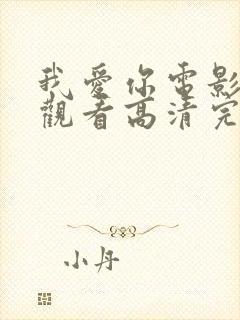 我愛你電影
觀看高清完
小丹